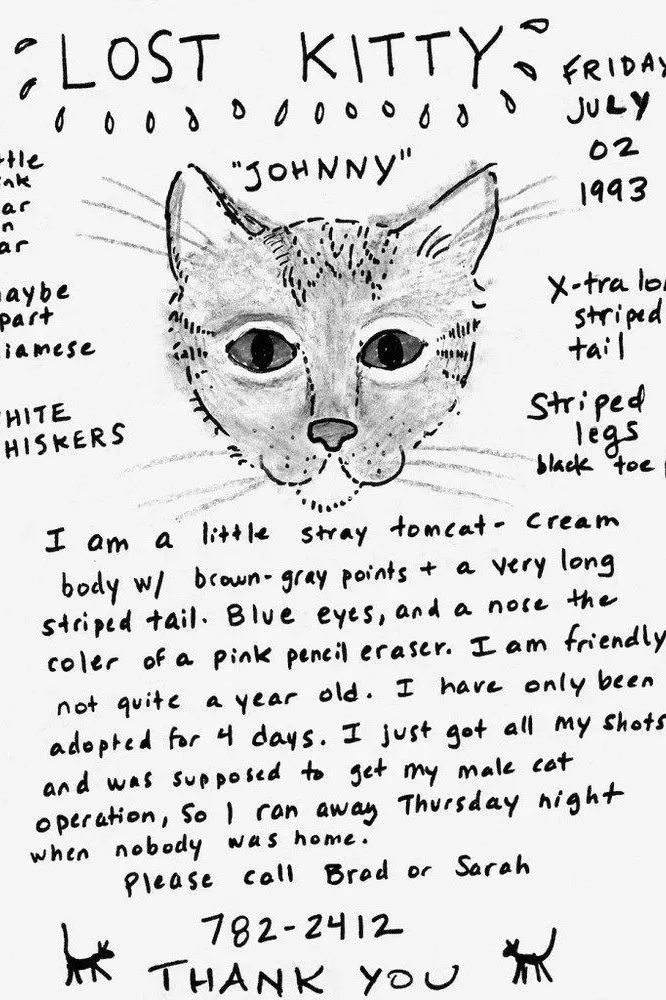 LOST KITTY
FRIDAY
JULY
02
1993
"JOHNNY"
maybe
part
WHITE
WHISKERS
X-tra
striped
tail
Striped
legs
black toe
I am a little stray tomcat- cream
body w/ brown-gray points + a very long
striped tail. Blue eyes, and a nose the
coler of a pink pencil eraser. I am friendly
not quite a year old. I have only been
adopted for 4 days. I just got all my shots
and was supposed to get my male cat
operation, So I ran away Thursday night
when nobody was home.
Please call Brad or Sarah
782-2412
THANK YOU